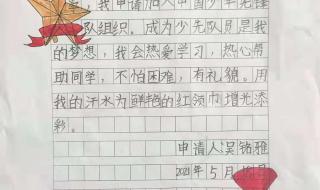 我申请加入中国少年先锋
队组织。成为少先队员是我
的梦想，我会热爱学习，热心帮
助同学，不怕困难，有礼貌。用
我的汗水为鲜艳的红领巾增光添
彩。
申请人：吴铭雅
2021年5月 日